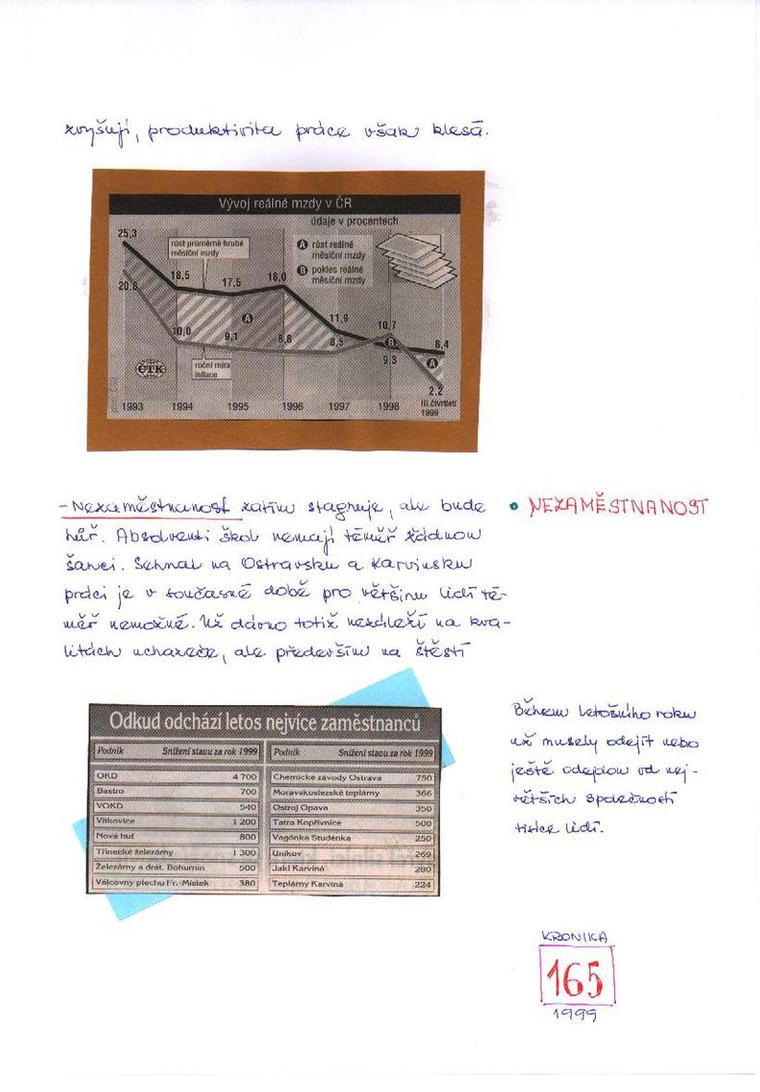 zvyšují, produktivita práce však klesá.
Vývoj reálné mzdy v ČR
údaje v procentech
25,3
růst průměrné hrubé
měsíční mzdy
A růst reálné
měsíční mzdy
B pokles reálné
měsíční mzdy
18,5
17,5
18,0
20,8
11,9
10,7
10,0
9,1
8,8
8,5
A
B
9,3
8,4
A
ČTK
roční míra
inflace
2,2
1993 1994 1995 1996 1997 1998 III.čtvrtletí
1999
- Nezaměstnanost zatím stagnuje, ale bude
hůř. Absolventi škol nemají téměř žádnou
šanci. Sehnat na Ostravsku a Karvinsku
práci je v současné době pro většinu lidí té-
měř nemožné. Už dávno totiž nezáleží na kva-
litách uchazeče, ale především na štěstí
• NEZAMĚSTNANOST
Odkud odchází letos nejvíce zaměstnanců
Podnik Snížení stavu za rok 1999 Podnik Snížení stavu za rok 1999
OKD 4 700 Chemické závody Ostrava 750
Bastro 700 Moravskoslezské teplárny 366
VOKD 540 Ostroj Opava 350
Vítkovice 1 200 Tatra Kopřivnice 500
Nová huť 800 Vagónka Studénka 250
Třinecké železárny 1 300 Unikov 269
Železárny a drát. Bohumín 500 Jäkl Karviná 280
Válcovny plechu Fr.-Místek 380 Teplárny Karviná 224
Během letošního roku
už musely odejít nebo
ještě odejdou od nej-
větších společností
tisíce lidí.
KRONIKA
165
1999